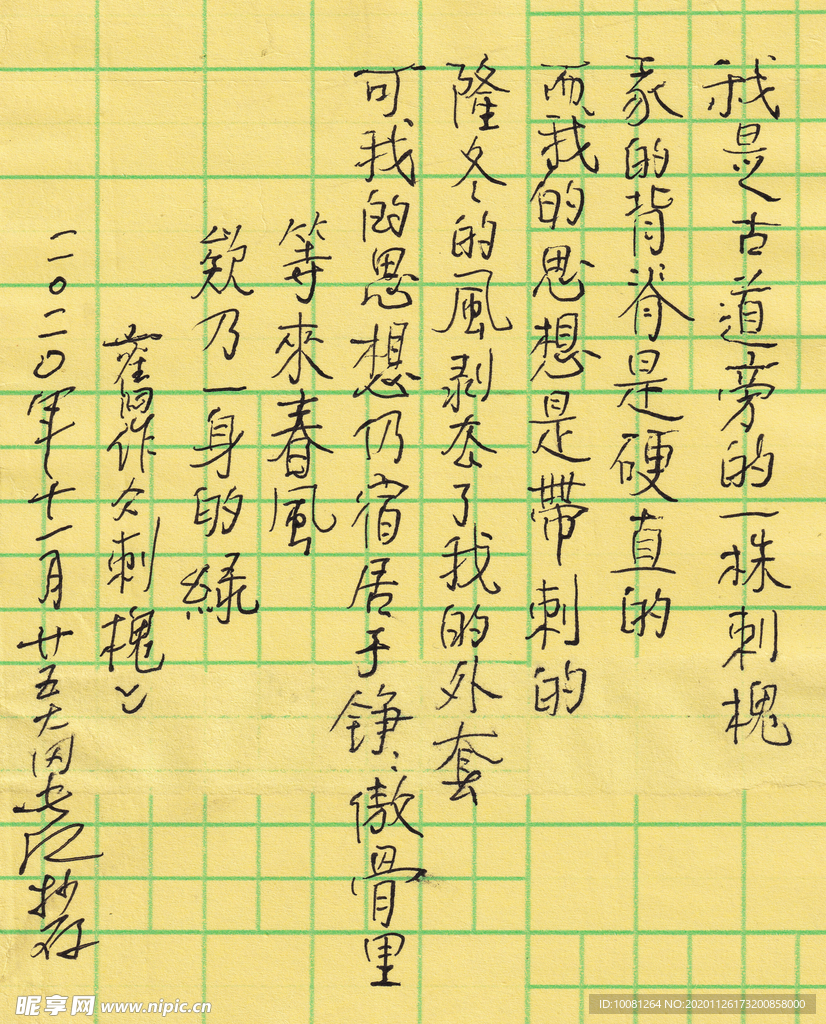 我是古道旁的一株刺槐
我的背脊是硬直的
而我的思想是帶刺的
隆冬的風剥去了我的外套
可我的思想仍宿居于錚々傲骨里
等來春風
欸乃一身的緑
舊作 刺槐
二〇二〇年十一月廿五 抄存
昵享网 www.nipic.cn
ID:10081264 NO:20201126173200858000